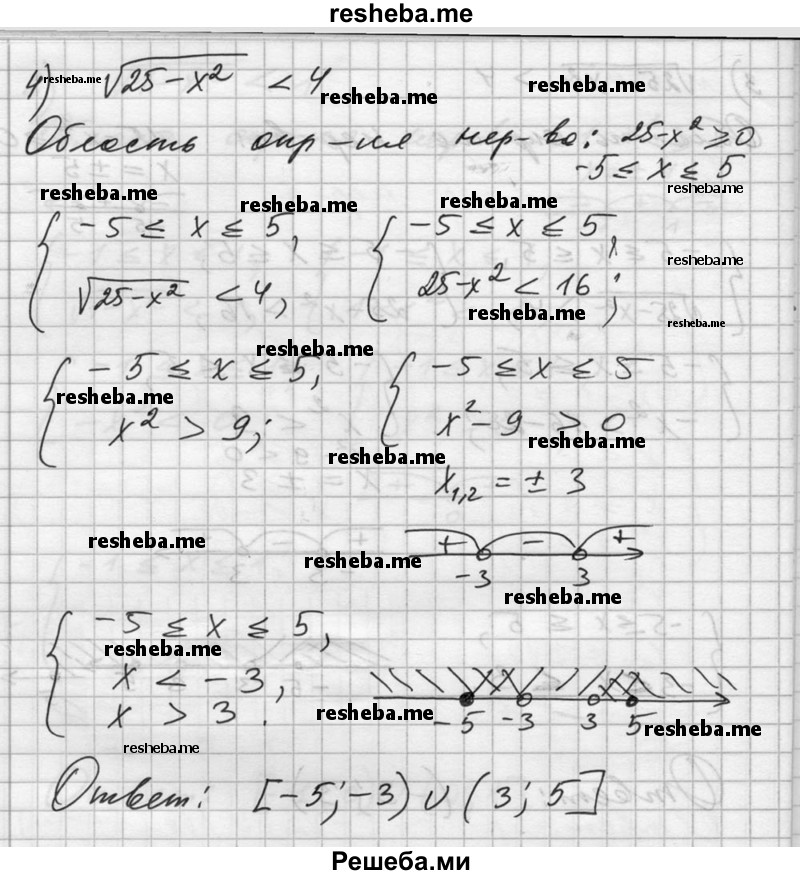 resheba.me
4) resheba.me √25-x² < 4 resheba.me resheba.me
Область опр-ия нер-во: 25-x² ≥ 0
-5 ≤ x ≤ 5
resheba.me resheba.me resheba.me resheba.me
{ -5 ≤ x ≤ 5, { -5 ≤ x ≤ 5,
resheba.me
√25-x² < 4, 25-x² < 16;
resheba.me resheba.me
resheba.me
{ -5 ≤ x ≤ 5, { -5 ≤ x ≤ 5
resheba.me
x² > 9; x² - 9 > 0
resheba.me resheba.me
x1,2 = ± 3
resheba.me + - +
resheba.me
-3 3
resheba.me
{ -5 ≤ x ≤ 5,
resheba.me
x < -3,
x > 3. resheba.me -5 -3 3 5 resheba.me
resheba.me
Ответ: [-5; -3) ∪ (3; 5]
Решеба.ми